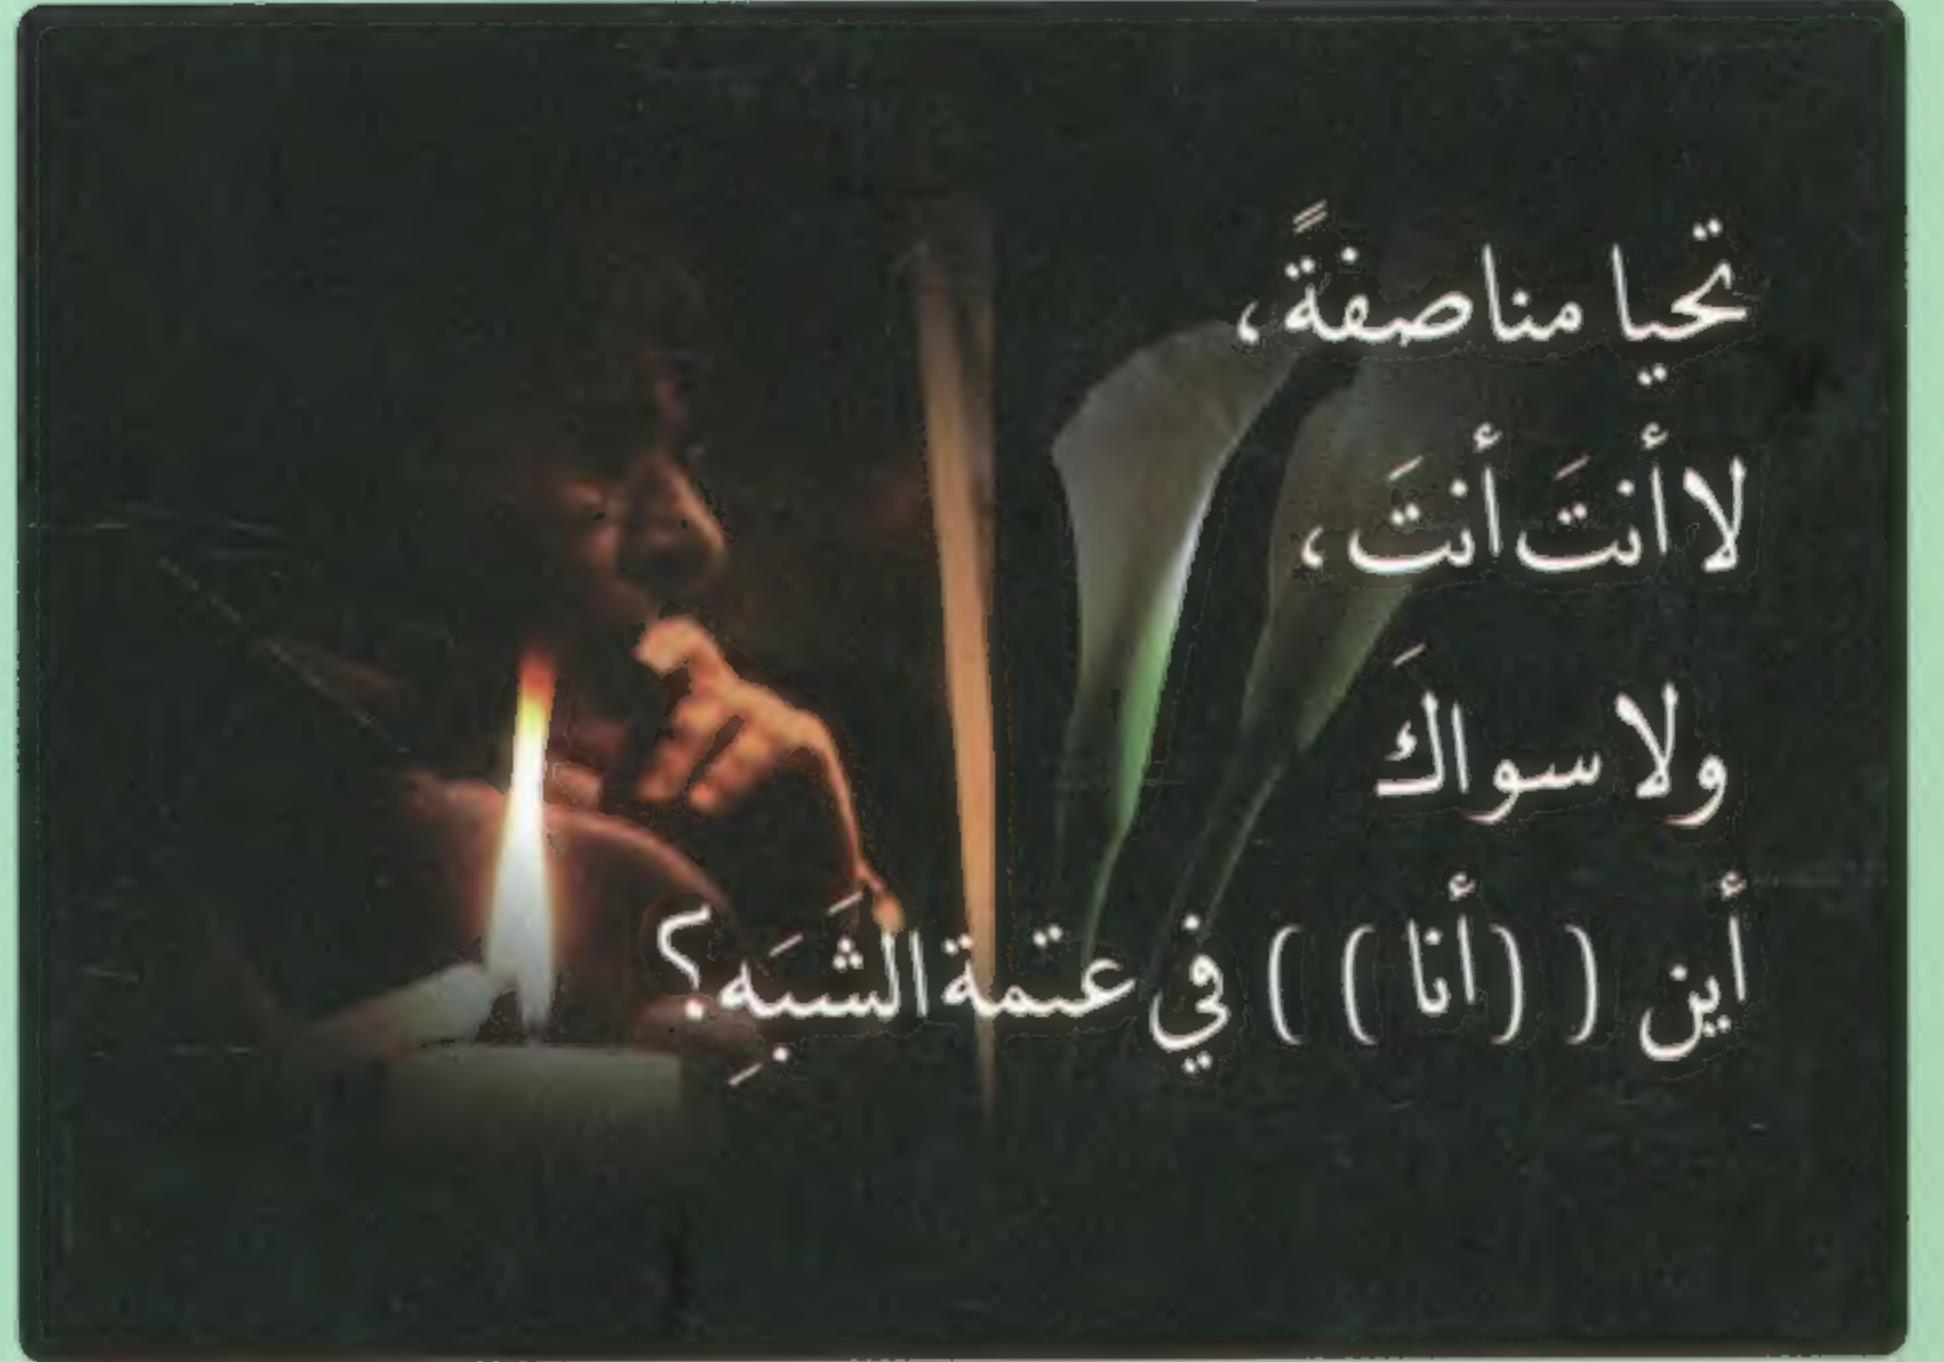 تحيا مناصفةً،
لا أنتَ أنتَ،
ولا سواكَ
أين ((أنا)) في عتمة الشَبَهِ؟